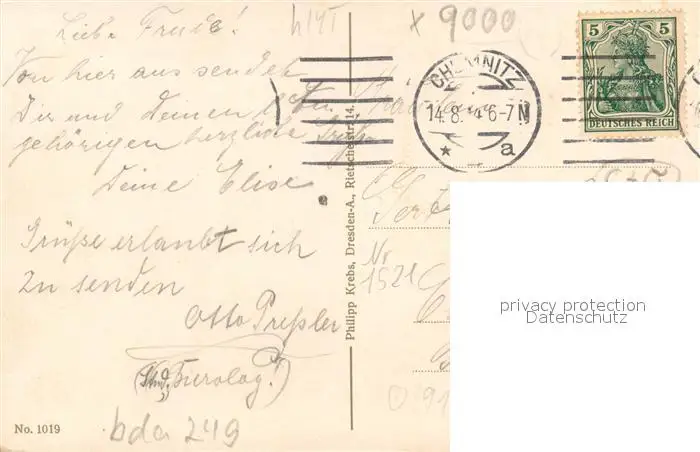 Liebe Frieda!
Von hier aus sendet
Dir und Deinen An-
gehörigen herzliche Grüße
Deine Elise
Grüße erlaubt sich
zu senden
Otto Preßler
No. 1019
bda 249
Philipp Krebs, Dresden-A., Rietschelstr. 14.
x 9000
CHEMNITZ
14.8. 4 6-7 N
a
5 5
DEUTSCHES REICH
Nr
1521
privacy protection
Datenschutz